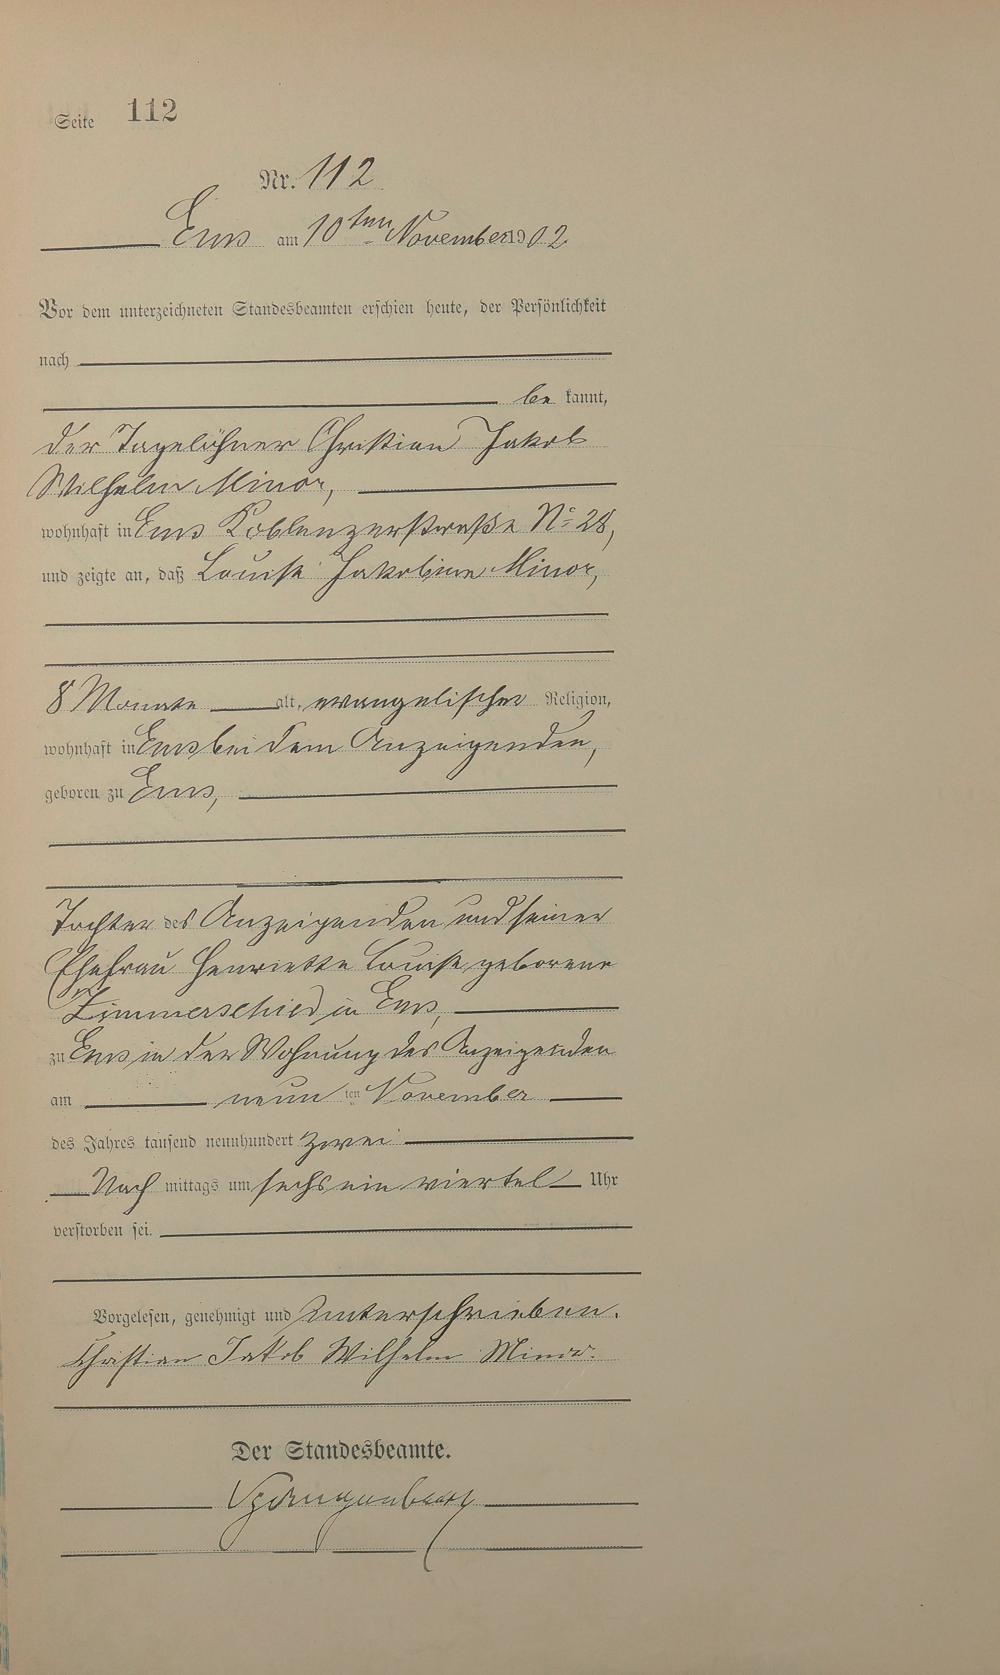 Seite 112
Nr. 112
Ems am 10ten November 1902
Vor dem unterzeichneten Standesbeamten erschien heute, der Persönlichkeit
nach
be kannt,
der Tagelöhner Christian Jakob
Wilhelm Minor,
wohnhaft in Ems Koblenzerstraße No 28,
und zeigte an, daß Louise Jakobine Minor,
8 Monate alt, evangelischer Religion,
wohnhaft in Ems bei dem Anzeigenden,
geboren zu Ems,
Tochter des Anzeigenden und seiner
Ehefrau Henriette Louise geborene
Zimmerschied in Ems,
zu Ems in der Wohnung des Anzeigenden
am neun ten November
des Jahres tausend neunhundert zwei
Nach mittags um sechs ein viertel Uhr
verstorben sei.
Vorgelesen, genehmigt und unterschrieben.
Christian Jakob Wilhelm Minor.
Der Standesbeamte.